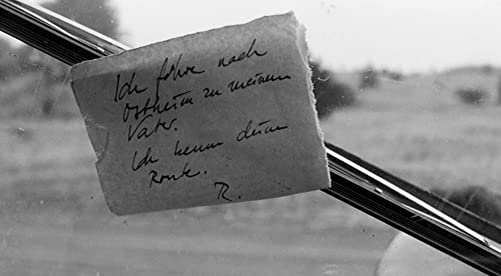 Ich fahre nach
Ostheim zu meinem
Vater.
Ich kenne deine
Route.
R.